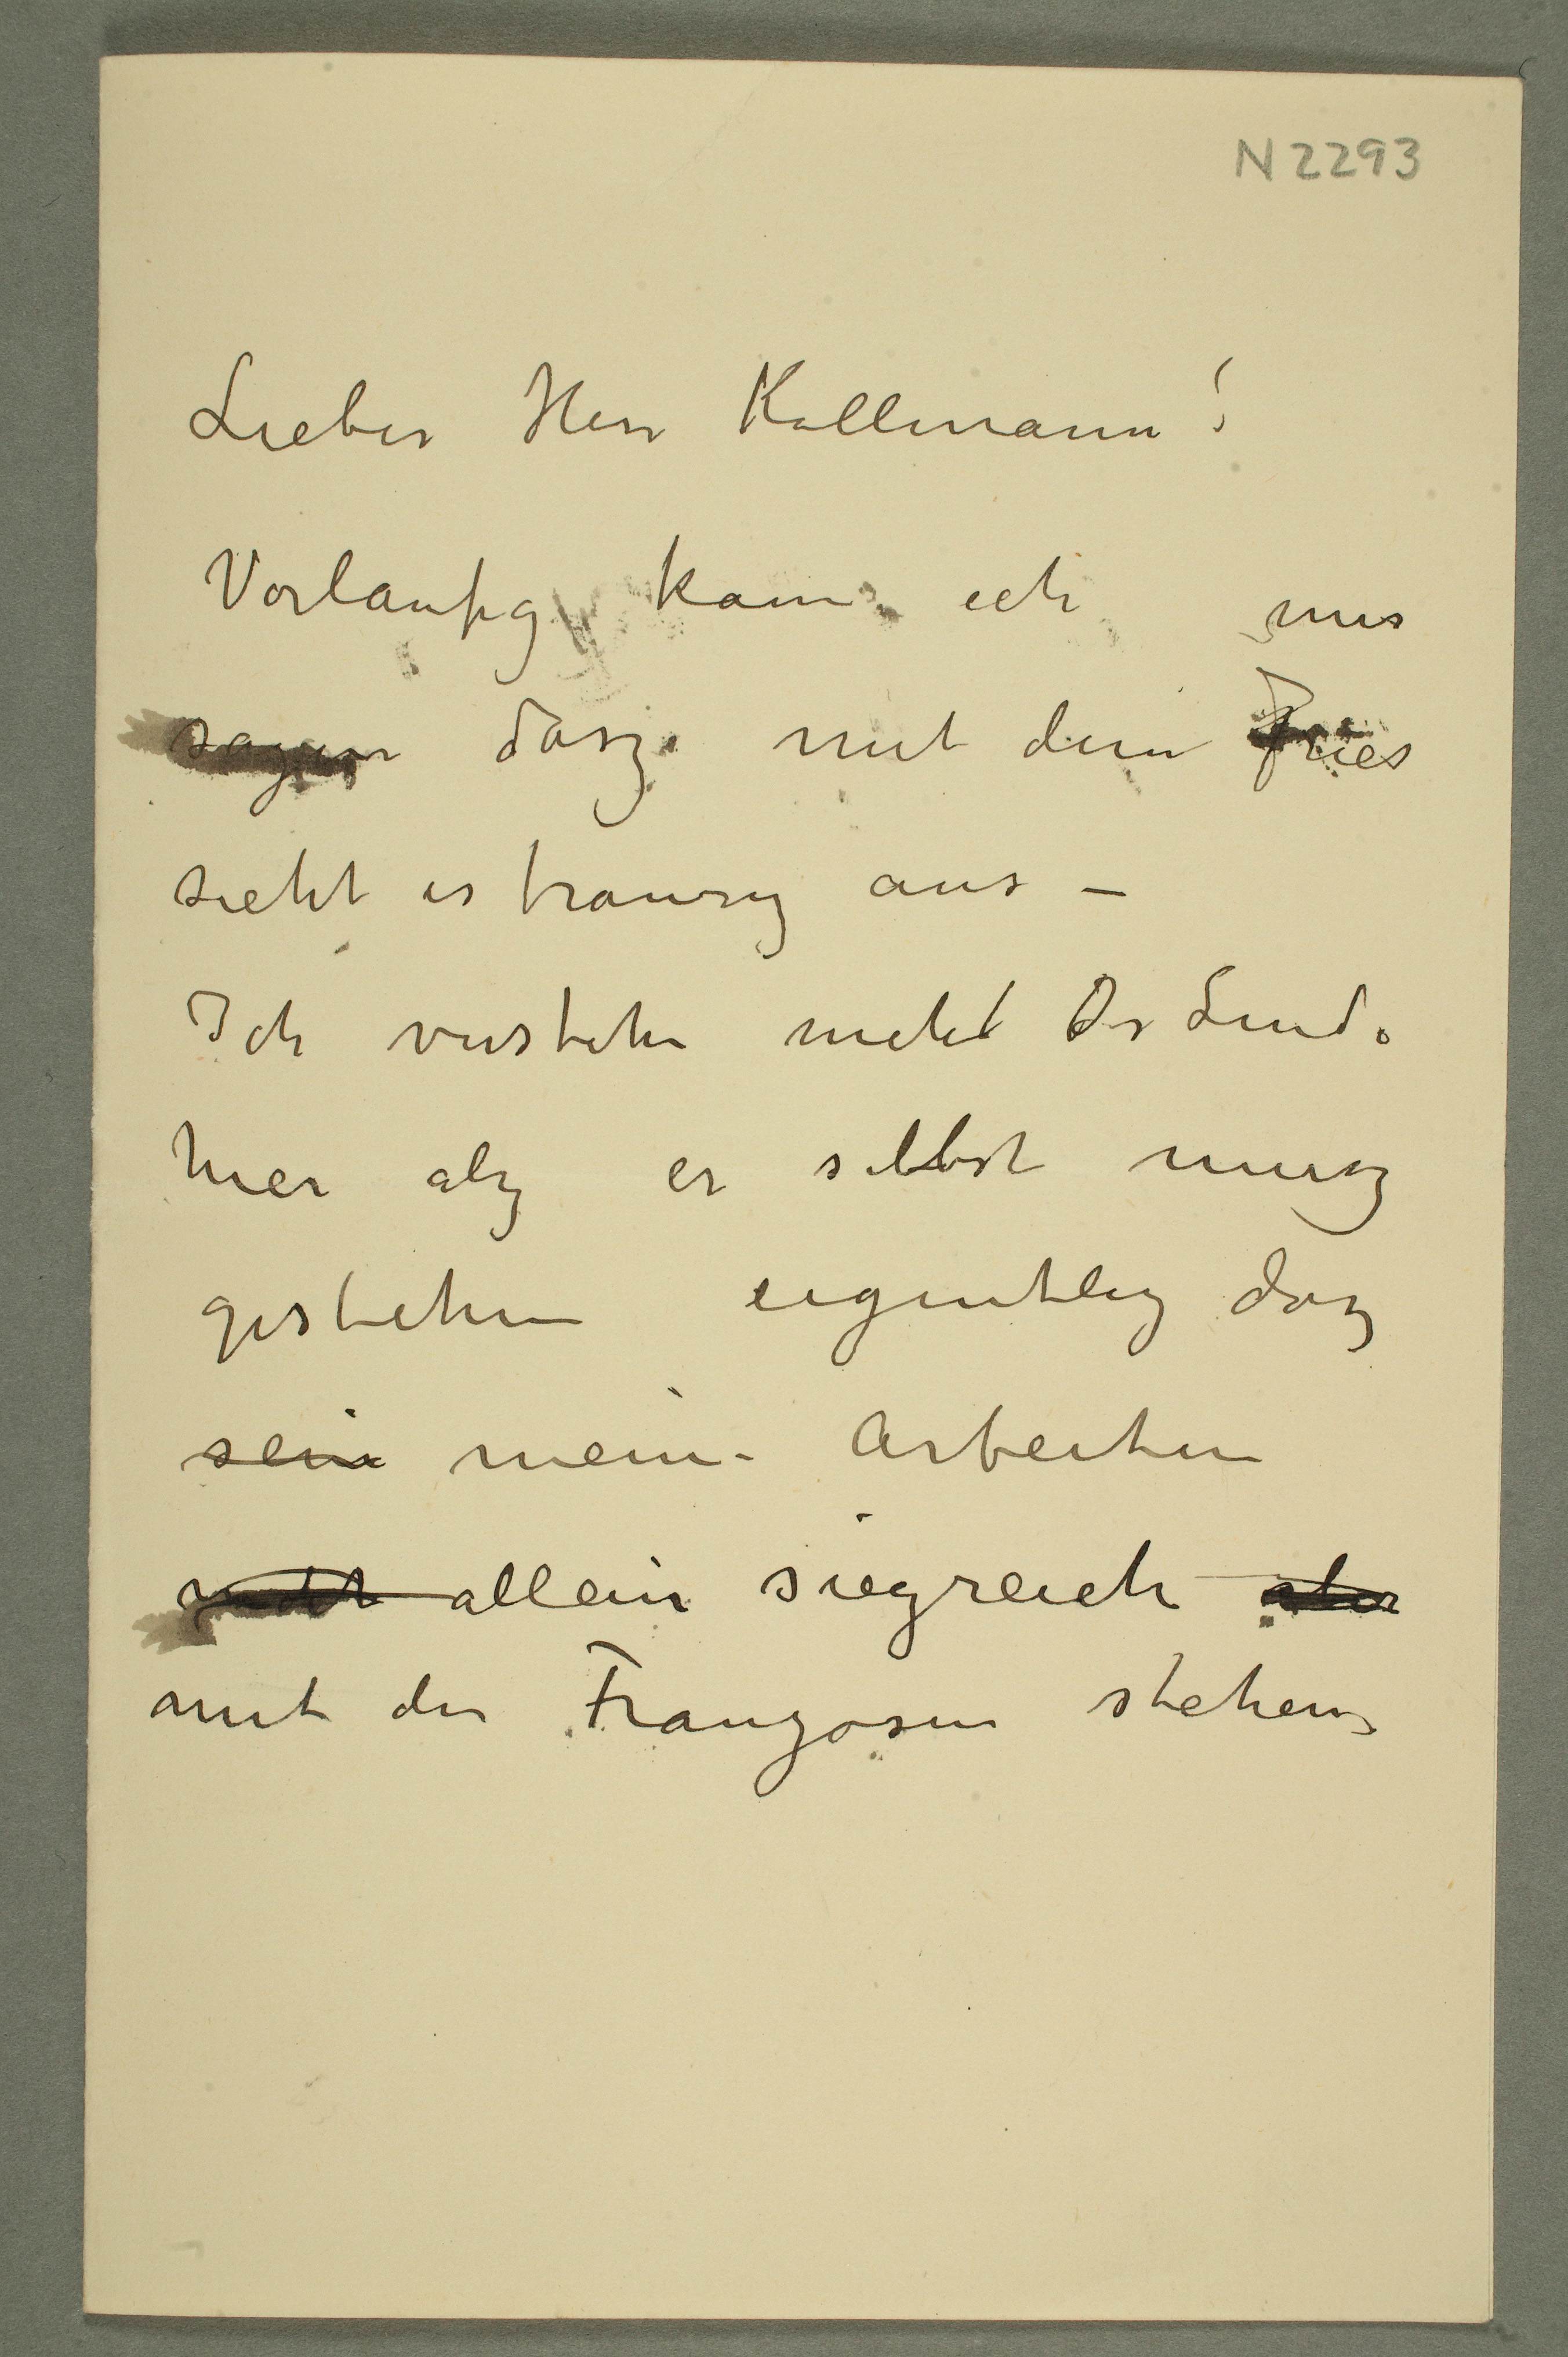 N 2293
Lieber Herr Kollmann!
Vorlaufig kann ich nur
sagen dasz mit dem Fries
sieht es traurig aus –
Ich verstehe nicht Dr Lind.
hier alz er selbst musz
gestehen eigentlig daz
sein meine Arbeiten
nicht allein siegreich aber
mit den Franzosen stehen